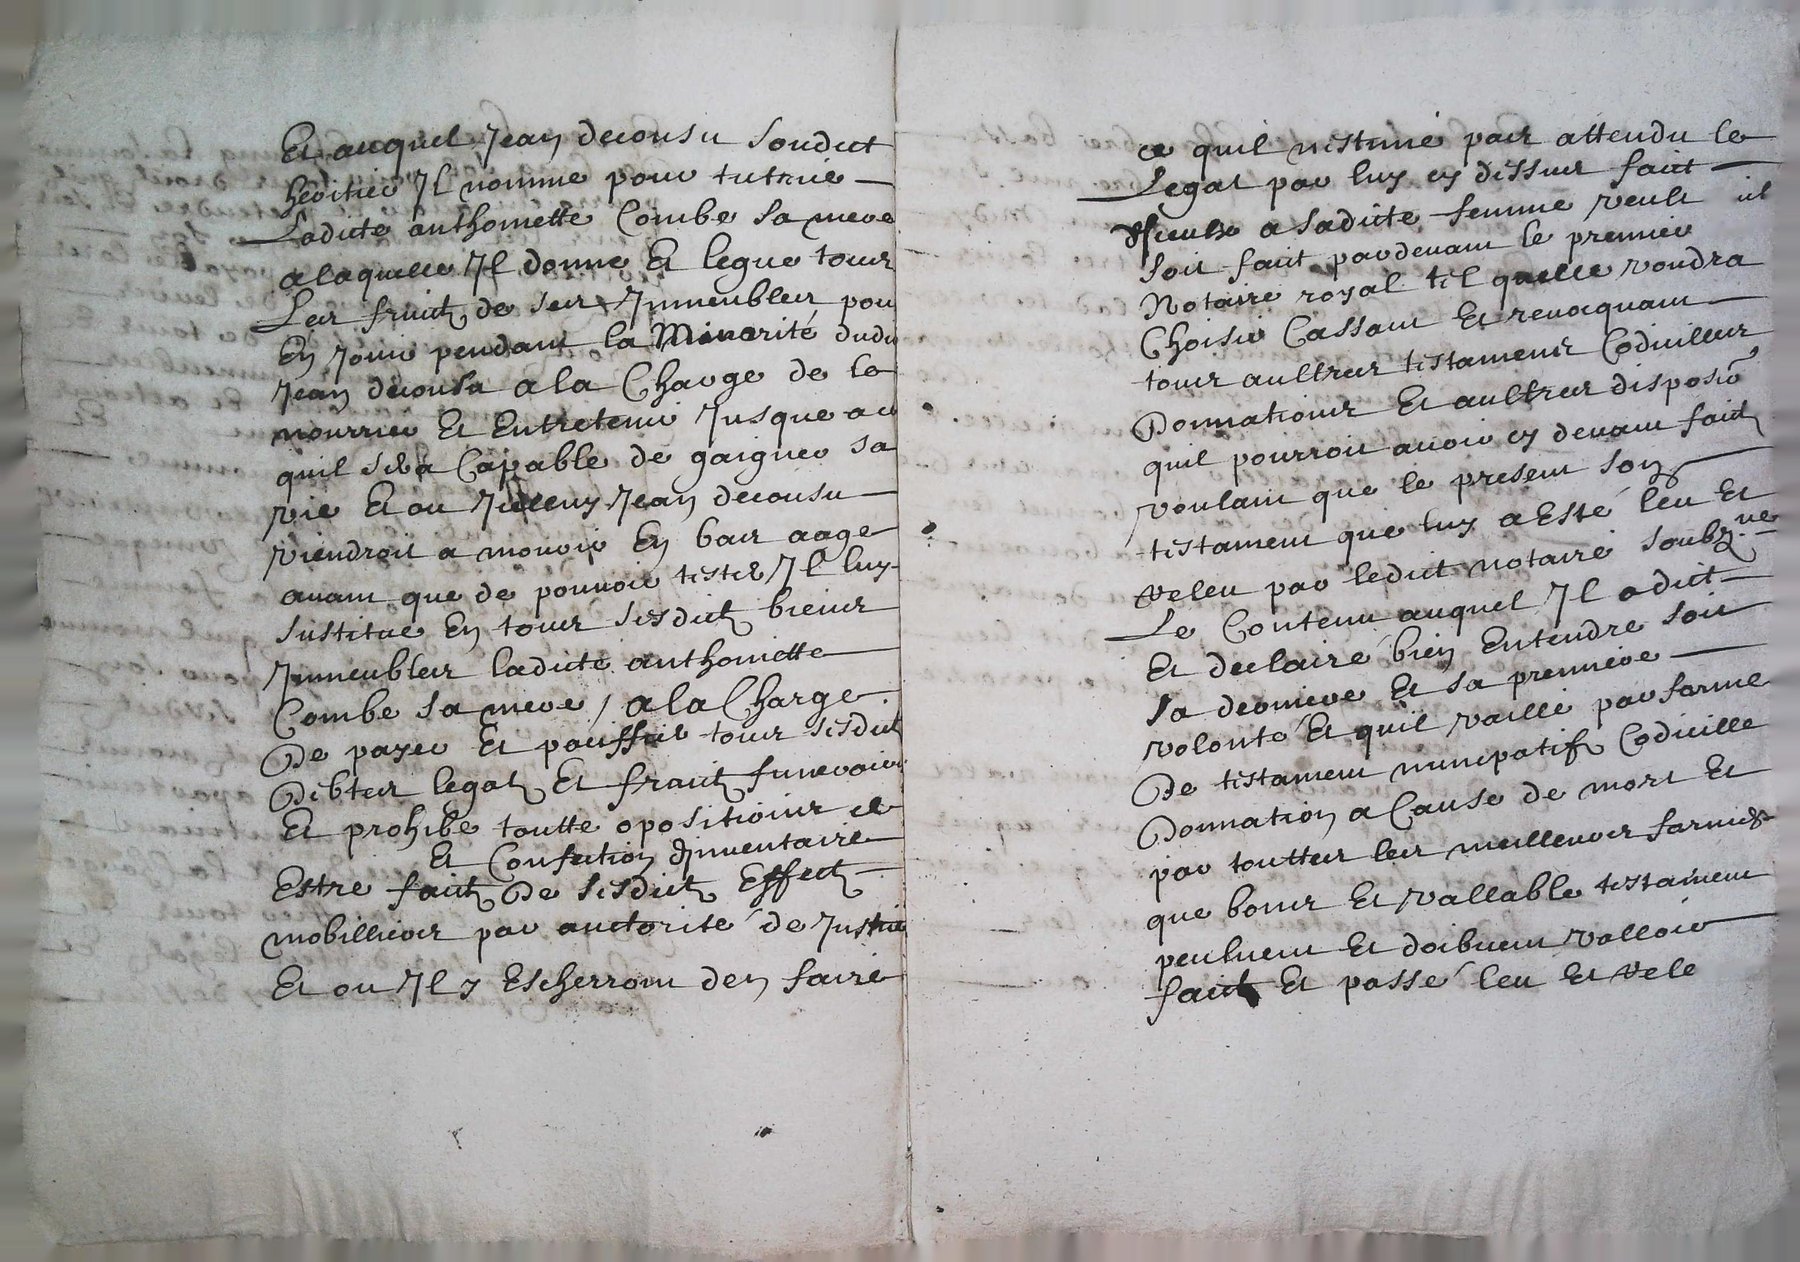 Et auquel Jean decousu soudict
heritier Il nomme pour tutrice
Ladicte anthoinette Combe sa mere
a laquelle Il donne Et legue tous
Les fruictz de ses Immeubles pour
En Jouir pendant la Minorité dudit
Jean decousu a la Charge de le
nourrir Et Entretenir Jusque a ce
quil sera Capable de gaigner sa
vie Et ou Jean decousu
viendroit a mourir En bas aage
avant que de pouvoir tester Il luy
sustitue En tous sesdictz biens
Immeubles ladicte anthoinette
Combe sa mere / a la Charge
De payer Et tous sesdictz
Debtes legatz Et fraictz funeraires
Et prohibe toutte opositions
Et Confection dinventaire
Estre faict De sesdictz Effectz
mobilliers par auctorité de Justice
Et ou Il y Escherront den faire
ce quil nestime pas attendu le
Legat par luy cy dessus faict
a sadicte femme veult il
soit faict pardevant le premier
Notaire royal tel quelle voudra
Choisir Cassant Et revocquant
tous aultres testaments Codicilles
Donnations Et aultres disposiõ
quil pourroit avoir cy devant faict
voulant que le present son
testament que luy a Esté leu Et
releu par ledict notaire soubz.ne
Le Contenu auquel Il a dict
Et declairé bien Entendre soit
sa derniere Et sa premiere
volonté Et quil vaille par forme
De testament nuncpatif Codicille
Donnation a Cause de mort Et
par touttes les meilleures formes
que bons Et vallable testament
peulvent Et doibvent valloir
faict Et passé leu Et rele